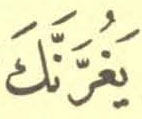 يَغُرَّنَّكَ